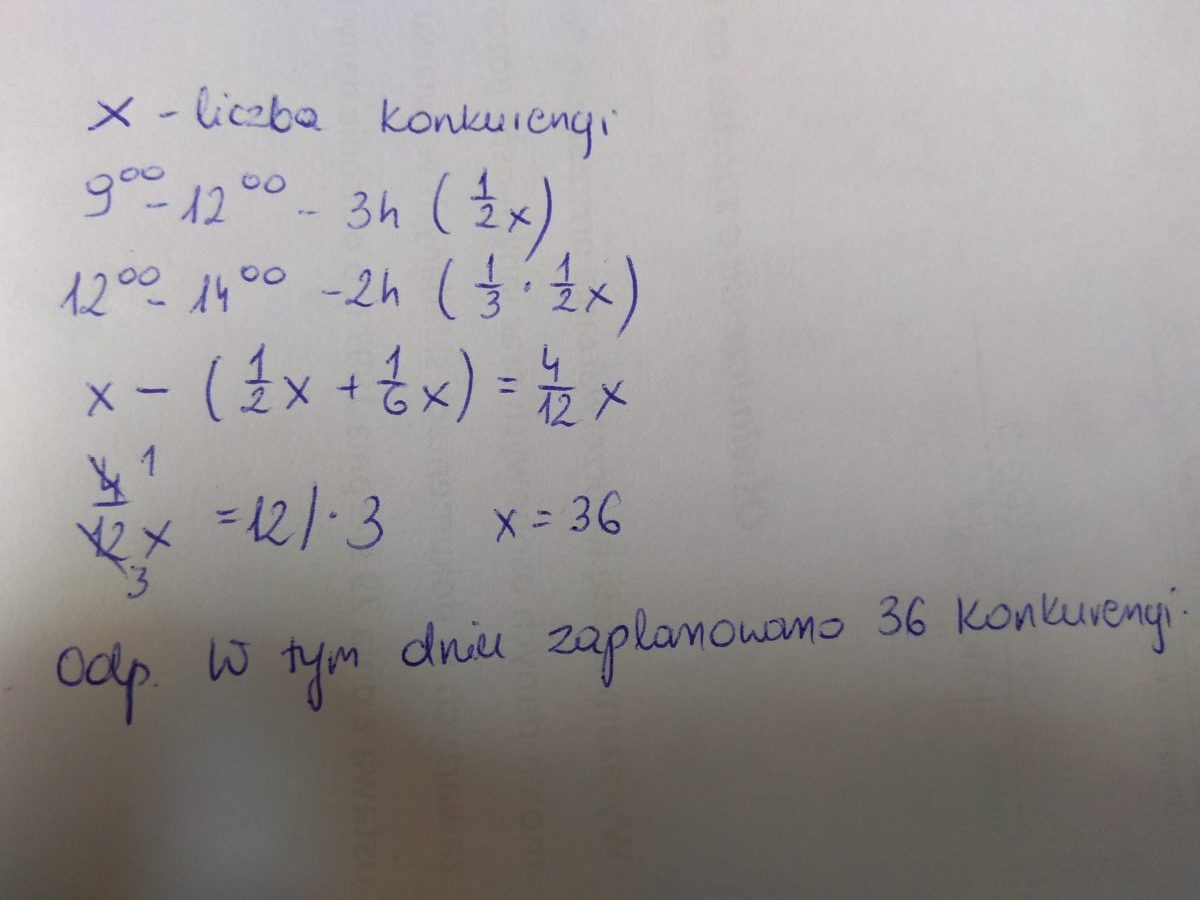 x - liczba konkurencji
9⁰⁰ - 12⁰⁰ - 3h (1/2 x)
12⁰⁰ - 14⁰⁰ - 2h (1/3 · 1/2 x)
x - (1/2 x + 1/6 x) = 4/12 x
4/12 x 1 3 = 12 / · 3 x = 36
Odp. W tym dniu zaplanowano 36 konkurencji.